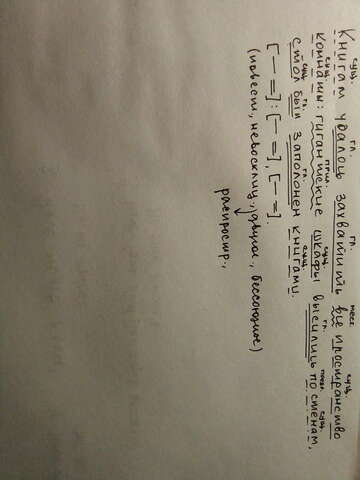 сущ. гл. гл. мест. сущ.
Книгам удалось захватить все пространство
сущ. прил. сущ. гл. сущ.
комнаты: гигантские шкафы высились по стенам,
сущ. гл. гл. сущ.
стол был заполонен книгами.
[— =]: [— =], [— =].
(повест., невосклиц., , бессоюзное)
распростр.,